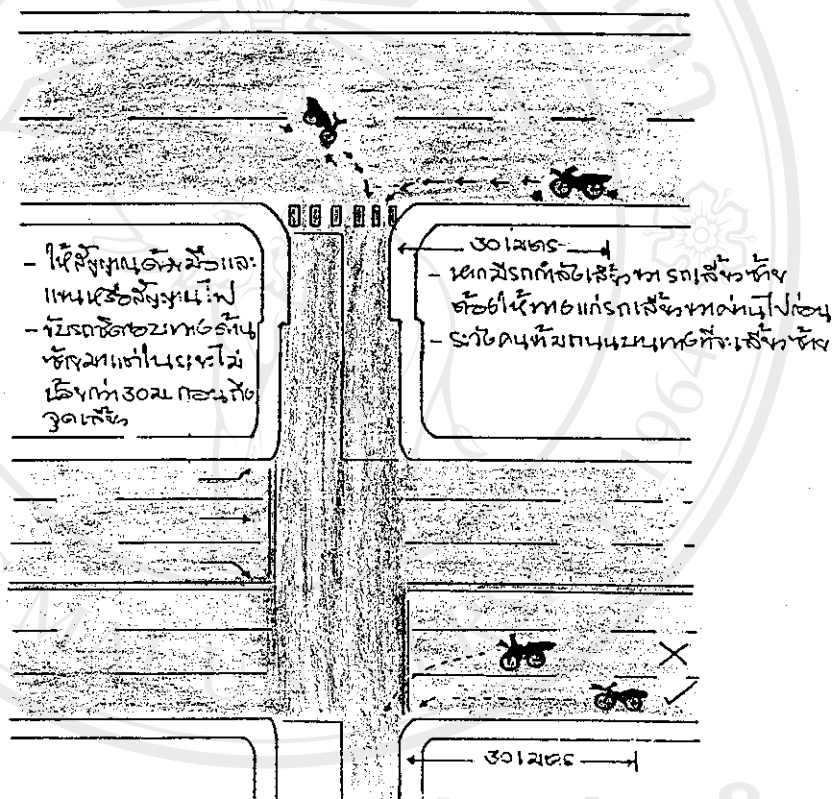 30 เมตร
- ให้สัญญาณด้วยมือและ
แขนหรือสัญญานไฟ
- ขับรถชิดขอบทางด้าน
ซ้ายมาแต่ในระยะไม่
น้อยกว่า 30 ม. ก่อนถึง
จุดเลี้ยว
- หากมีรถกำลังเลี้ยวขวา รถเลี้ยวซ้าย
ต้องให้ทางแก่รถเลี้ยวขวาผ่านไปก่อน
- ระวังคนข้ามถนนบนทางที่จะเลี้ยวซ้าย
30 เมตร
1964